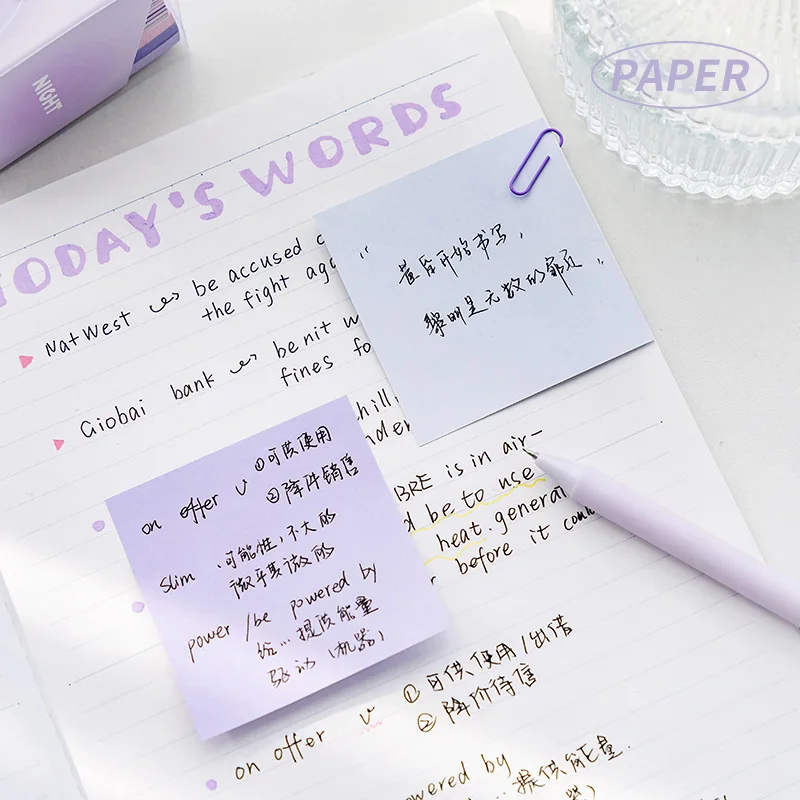 PAPER
NIGHT
TODAY'S WORDS
NatWest be accused
the fight aga
Giobai bank be nit w
fines fo
"
黎明是无数的邮
开始书写,
hill
nder
BRE is in air-
d be to use
heat. genera
r before it
on offer v ①可供使用
②降价销售
slim (可能性)不大的
power /be powered by
给...提供能量
驱动 (机器)
on offer v ①可供使用/出借
②降价待售
owered by
...提供能量.